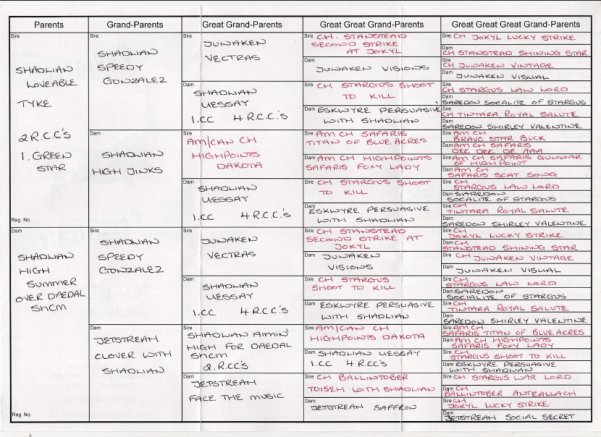 Parents
Grand-Parents
Great Grand-Parents
Great Great Grand-Parents
Great Great Great Grand-Parents
Sire
SHAOLIAN
LOVEABLE
TYKE
2 R.C.C'S
1. GREEN
STAR
Reg. No.
Dam
SHAOLIAN
HIGH
SUMMER
OVER DAEDAL
ShCM
Reg. No.
Sire
SHAOLIAN
SPEEDY
GONZALEZ
Dam
SHAOLIAN
HIGH JINKS
Sire
SHAOLIAN
SPEEDY
GONZALEZ
Dam
JETSTREAM
CLOVER WITH
SHAOLIAN
Sire
JUWAKEN
VECTRAS
Dam
SHAOLIAN
UESSAY
1.CC 4 R.C.C.'S
Sire
AM/CAN CH
HIGHPOINTS
DAKOTA
Dam
SHAOLIAN
UESSAY
1.CC 4 R.C.C.'S
Sire
JUWAKEN
VECTRAS
Dam
SHAOLIAN
UESSAY
1.CC 4 R.C.C.'S
Sire
SHAOLIAN AIMIN'
HIGH FOR DAEDAL
ShCM
2. R.CC'S
Dam
JETSTREAM
FACE THE MUSIC
Sire CH. STANSTEAD
SECOND STRIKE
AT JOKYL
Dam
JUWAKEN VISIONS
Sire CH STARGUS SHOOT
TO KILL
Dam ESKWYRE PERSUASIVE
WITH SHAOLIAN
Sire AM CH SAFARIS
TITAN OF BLUE ACRES
Dam AM CH HIGHPOINTS
SAFARIS FOXY LADY
Sire CH STARGUS SHOOT
TO KILL
Dam
ESKWYRE PERSUASIVE
WITH SHAOLIAN
Sire CH STANSTEAD
SECOND STRIKE AT
JOKYL
Dam JUWAKEN
VISIONS
Sire CH STARGUS
SHOOT TO KILL
Dam ESKWYRE PERSUASIVE
WITH SHAOLIAN
Sire AM/CAN CH
HIGHPOINTS DAKOTA
Dam SHAOLIAN UESSAY
1.CC 4 R.CC'S
Sire CH BALLINTOBER
WITH SHAOLIAN
Dam
JETSTREAM SAFFRON
Sire CH JOKYL LUCKY STRIKE
Dam
CH STANSTEAD SHINING STAR
Sire CH JUWAKEN VINTAGE
Dam
JUWAKEN VISUAL
Sire CH STARGUS LAW LORD
Dam
SAREDON SOCALITE OF STARGUS
Sire CH TINTARA ROYAL SALUTE
Dam
SAREDON SHIRLEY VALENTINE
Sire AM CH
STAR BUCK
Dam AM CH SAFARIS
Sire AM CH SAFARIS
OF HIGH POINT
Dam AM CH
SAFARIS SCAT SONG
Sire CH
STARGUS LAW LORD
Dam SAREDON
SOCALITE OF STARGUS
Sire CH
TINTARA ROYAL SALUTE
Dam
SAREDON SHIRLEY VALENTINE
Sire CH
JOKYL LUCKY STRIKE
Dam CH
STANSTEAD SHINING STAR
Sire CH JUWAKEN VINTAGE
Dam
JUWAKEN VISUAL
Sire CH
STARGUS LAW LORD
Dam SAREDON
SOCIALITE OF STARGUS
Sire CH
TINTARA ROYAL SALUTE
Dam
SAREDON SHIRLEY VALENTINE
Sire AM CH
SAFARIS TITAN OF BLUE ACRES
Dam AM CH HIGHPOINTS
SAFARIS FOXY LADY
Sire CH
STARGUS SHOOT TO KILL
Dam ESKWYRE PERSUASIVE
WITH SHAOLIAN
Sire CH STARGUS WAR LORD
Dam CH
BALLINTOBER
Sire CH
JOKYL LUCKY STRIKE
Dam
JETSTREAM SOCIAL SECRET